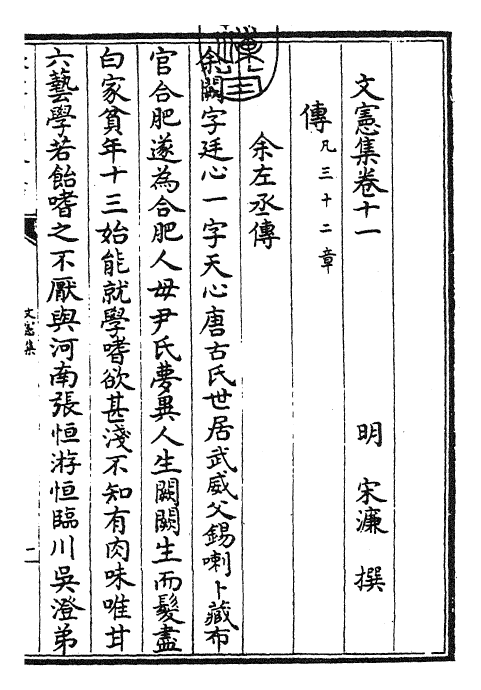 文憲集卷十一
明 宋濂 撰
傳凡三十二章
余左丞傳
余闕字廷心一字天心唐古氏世居武威父錫喇卜藏布
官合肥遂為合肥人母尹氏夢異人生闕闕生而髮盡
白家貧年十三始能就學嗜欲甚淺不知有肉味唯甘
六藝學若飴嗜之不厭與河南張恒游恒臨川吳澄弟
文憲集